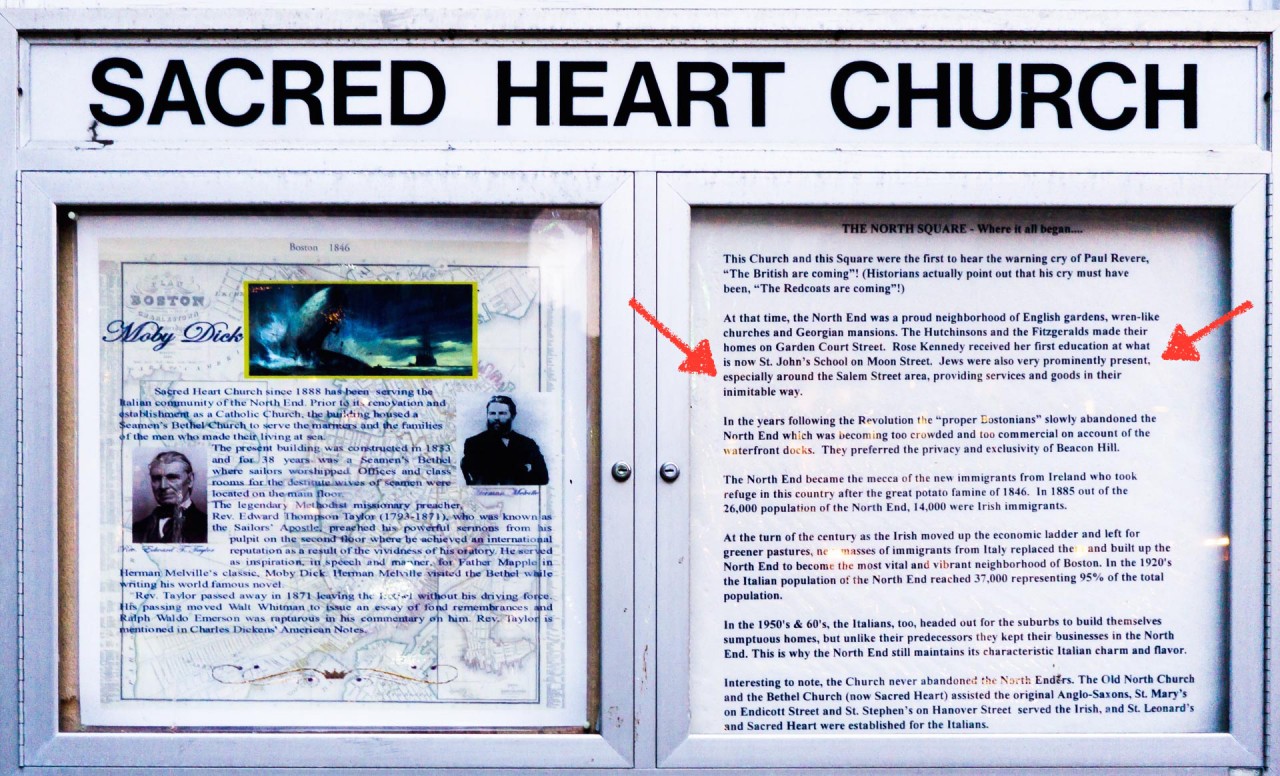 SACRED HEART CHURCH
Boston 1846
BOSTON
Moby Dick
Sacred Heart Church since 1888 has been serving the
Italian community of the North End. Prior to its renovation and
establishment as a Catholic Church, the building housed a
Seamen's Bethel Church to serve the mariners and the families
of the men who made their living at sea.
The present building was constructed in 1833
and for 38 years was a Seamen's Bethel
where sailors worshipped. Offices and class
rooms for the destitute wives of seamen were
located on the main floor.
Herman Melville
The legendary Methodist missionary preacher,
Rev. Edward Thompson Taylor (1793-1871), who was known as
the Sailors' Apostle, preached his powerful sermons from his
pulpit on the second floor where he achieved an international
Rev. Edward T. Taylor
reputation as a result of the vividness of his oratory. He served
as inspiration, in speech and manner, for Father Mapple in
Herman Melville's classic, Moby Dick. Herman Melville visited the Bethel while
writing his world famous novel.
Rev. Taylor passed away in 1871 leaving the Bethel without his driving force.
His passing moved Walt Whitman to issue an essay of fond remembrances and
Ralph Waldo Emerson was rapturous in his commentary on him. Rev. Taylor is
mentioned in Charles Dickens' American Notes.
THE NORTH SQUARE - Where it all began....
This Church and this Square were the first to hear the warning cry of Paul Revere,
"The British are coming"! (Historians actually point out that his cry must have
been, "The Redcoats are coming"!)
At that time, the North End was a proud neighborhood of English gardens, wren-like
churches and Georgian mansions. The Hutchinsons and the Fitzgeralds made their
homes on Garden Court Street. Rose Kennedy received her first education at what
is now St. John's School on Moon Street. Jews were also very prominently present,
especially around the Salem Street area, providing services and goods in their
inimitable way.
In the years following the Revolution the "proper Bostonians" slowly abandoned the
North End which was becoming too crowded and too commercial on account of the
waterfront docks. They preferred the privacy and exclusivity of Beacon Hill.
The North End became the mecca of the new immigrants from Ireland who took
refuge in this country after the great potato famine of 1846. In 1885 out of the
26,000 population of the North End, 14,000 were Irish immigrants.
At the turn of the century as the Irish moved up the economic ladder and left for
greener pastures, new masses of immigrants from Italy replaced them and built up the
North End to become the most vital and vibrant neighborhood of Boston. In the 1920's
the Italian population of the North End reached 37,000 representing 95% of the total
population.
In the 1950's & 60's, the Italians, too, headed out for the suburbs to build themselves
sumptuous homes, but unlike their predecessors they kept their businesses in the North
End. This is why the North End still maintains its characteristic Italian charm and flavor.
Interesting to note, the Church never abandoned the North Enders. The Old North Church
and the Bethel Church (now Sacred Heart) assisted the original Anglo-Saxons, St. Mary's
on Endicott Street and St. Stephen's on Hanover Street served the Irish, and St. Leonard's
and Sacred Heart were established for the Italians.